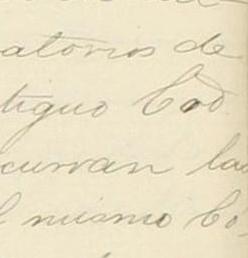 atorios de
tiguo Cod
curran las
l mismo Co-